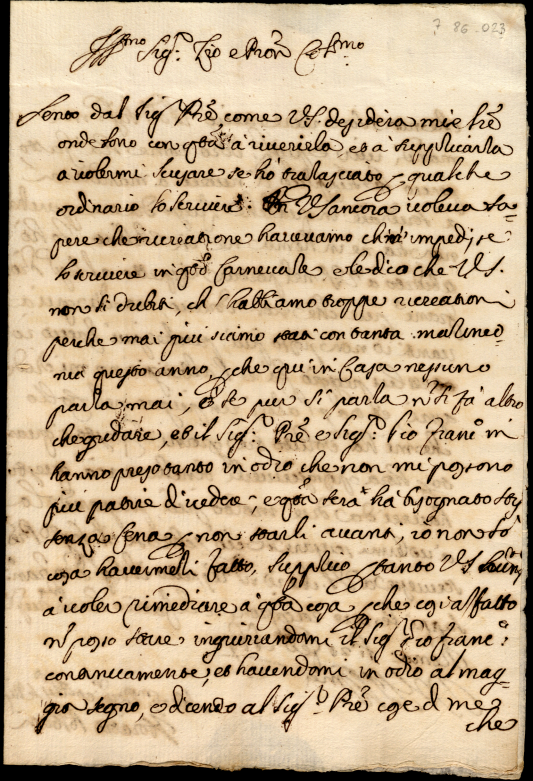 7 86-023
Ill.mo Sig.r Zio e Pron Col.mo
Sento dal Sig.r Pre come VS. desidera mie lre
onde sono con qsta à riverirla, et a supplicarla
a volermi scusare se hò tralasciato p qualche
ordinario lo scrivere. VS ancora voleva sa=
pere che ricreazione havevamo ch m'impedisse
lo scrivere in qsto Carnevale e le dico che VS.
non si dubiti, ch habbiamo troppe ricreationi
perche mai più siamo stati con tanta malinco=
nia questo anno, p che qui in Casa nessuno
parla mai, e se pur si parla n si fà altro
che gridare, et il Sig.r Pre e Sig.r Zio Franc.o mi
hanno preso tanto in odio che non mi possono
più patire di vedere, e qsta sera hà bisognato
senza Cena p non starli avanti, io non sò
cosa havermeli fatto, supplico p tanto VS
à voler rimediare à qsta cosa p che così affatto
n posso stare ingiuriandomi il Sig.r Zio Franc.o
continuamente, et havendomi in odio al mag=
gior segno, e dicendo al Sig.r Pre cose di me
che